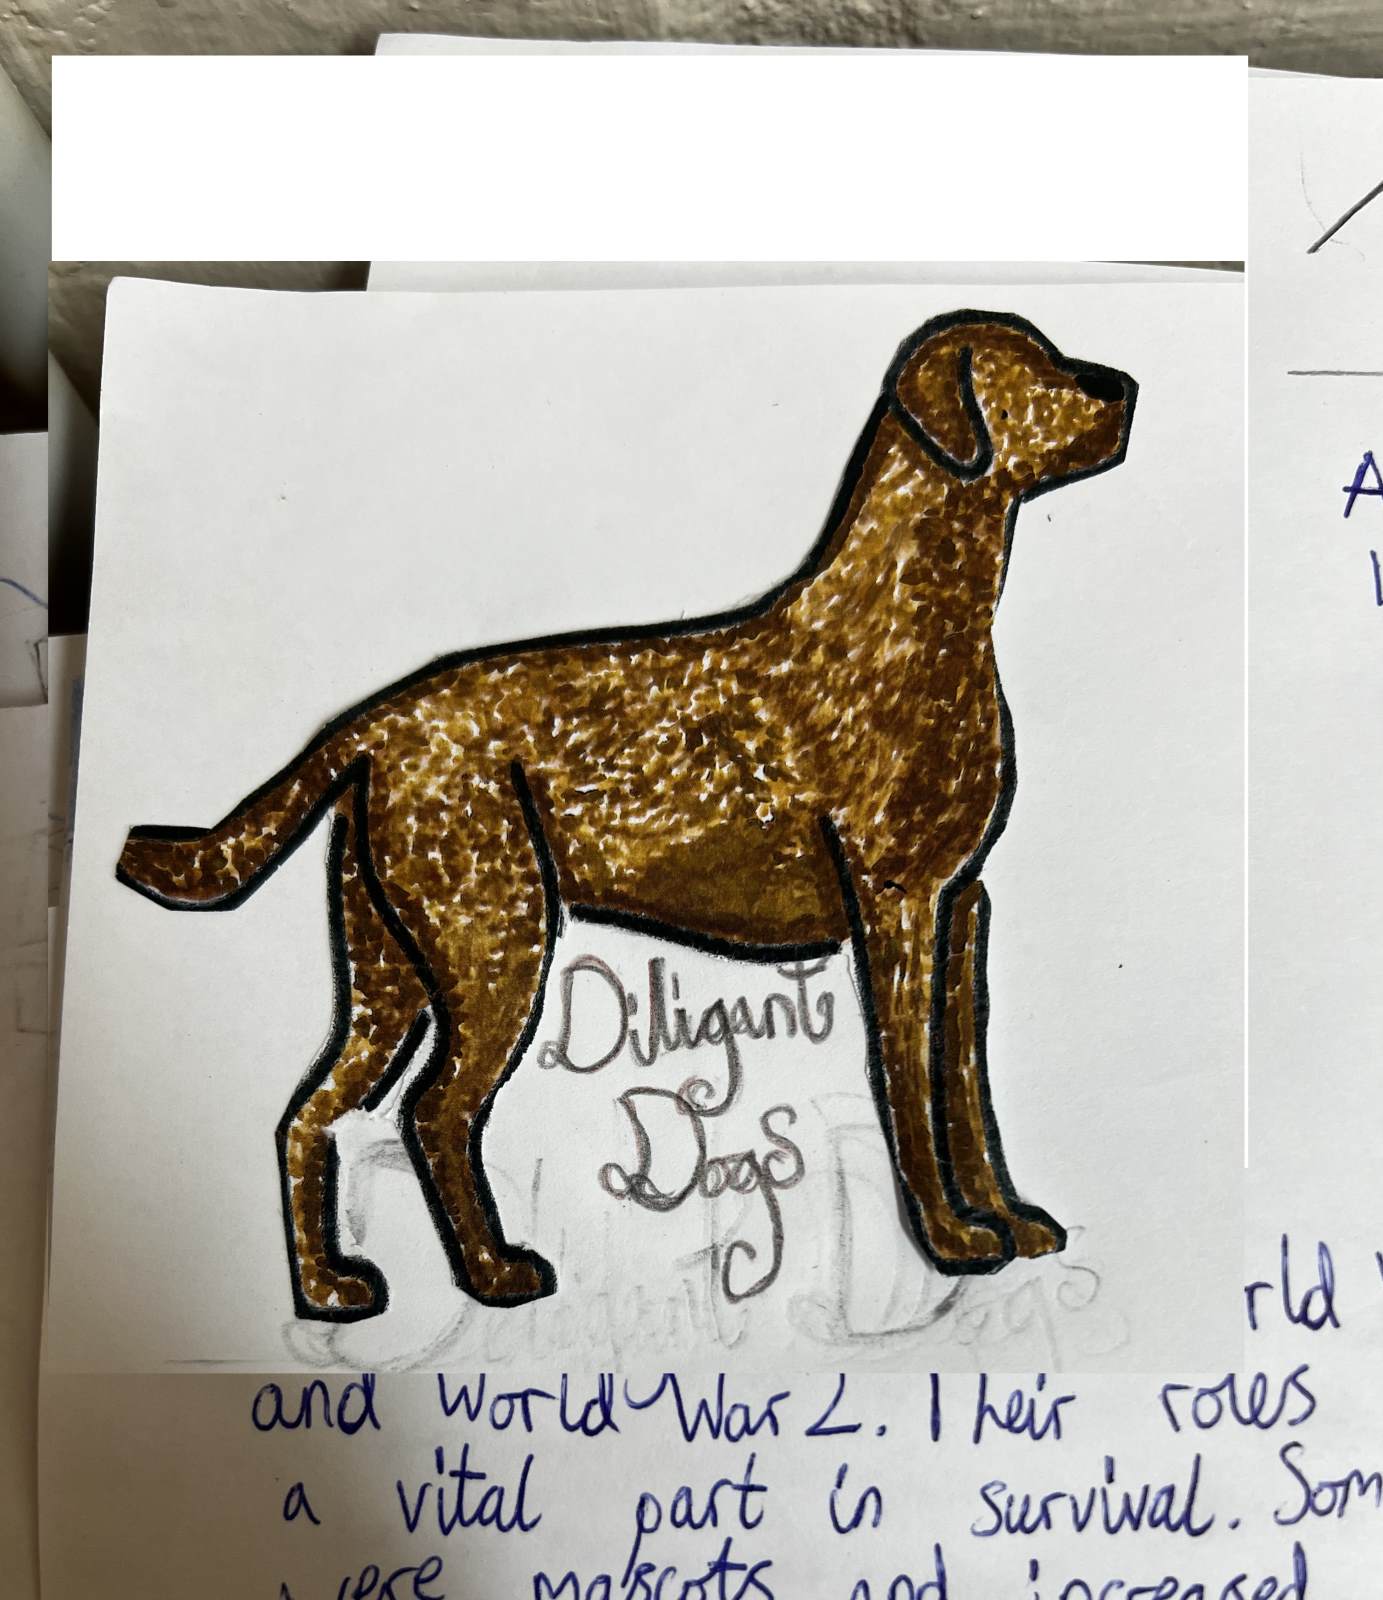 Diligant
Dogs
Diligant Dogs
A
rld
and World War 2. Their roles
a vital part in survival. Som
were mascots and increased